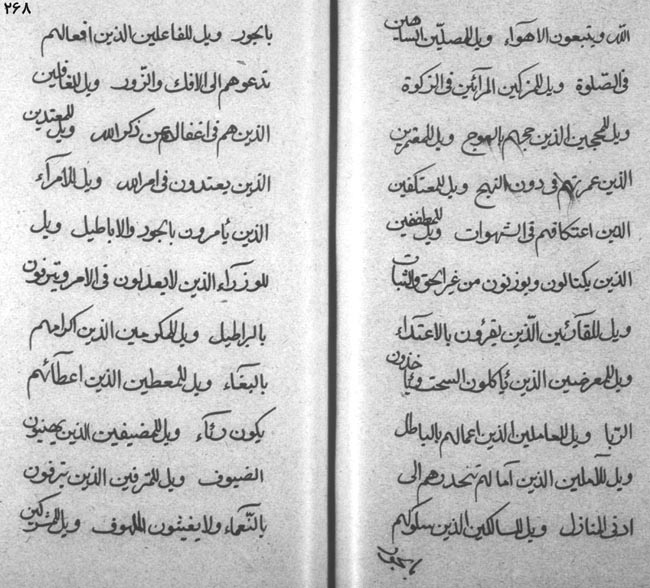 ۲۶۸
الله ويتبعون الاهواء ويل للمصلّين الساهين
فى الصّلوة ويل للمزكين المرآئين فى الزكوة
ويل للمحجين الذين حجهم بالعوج ويل للمعتمرين
الذين عمرتهم فى دون النهج ويل للمعتكفين
الذين اعتكافهم فى الشهوات ويل للمطففين
الذين يكتالون ويوزنون من غير الحق والثبات
ويل للقآرئين الّذين يقرؤن بالاعتدآء
ويل للمعرضين الذين يأكلون السحت ويأخذون
الرّبا ويل للعاملين الذين اعمالهم بالباطل
ويل للآملين الذين آمالهم تنحدرهم الى
ادنى المنازل ويل للسالكين الذين سلوكهم
بالجور
بالجور ويل للفاعلين الذين افعالهم
تدعوهم الى الافك والزّور ويل للغافلين
الذين هم فى اغفالهم عن ذكر الله ويل للمعتدين
الذين يعتدون فى امر الله ويل للامرآء
الذين يأمرون بالجور والاباطيل ويل
للوزرآء الذين لا يعدلون فى الامر ويترفون
بالبراطيل ويل للمكرمين الذين اكرامهم
بالبغآء ويل للمعطين الذين اعطآئهم
يكون رئآء ويل للمضيفين الذين يهينون
الضيوف ويل للمترفين الذين يترفون
بالنّعمآء ولا يغيثون الملهوف ويل للمشركين